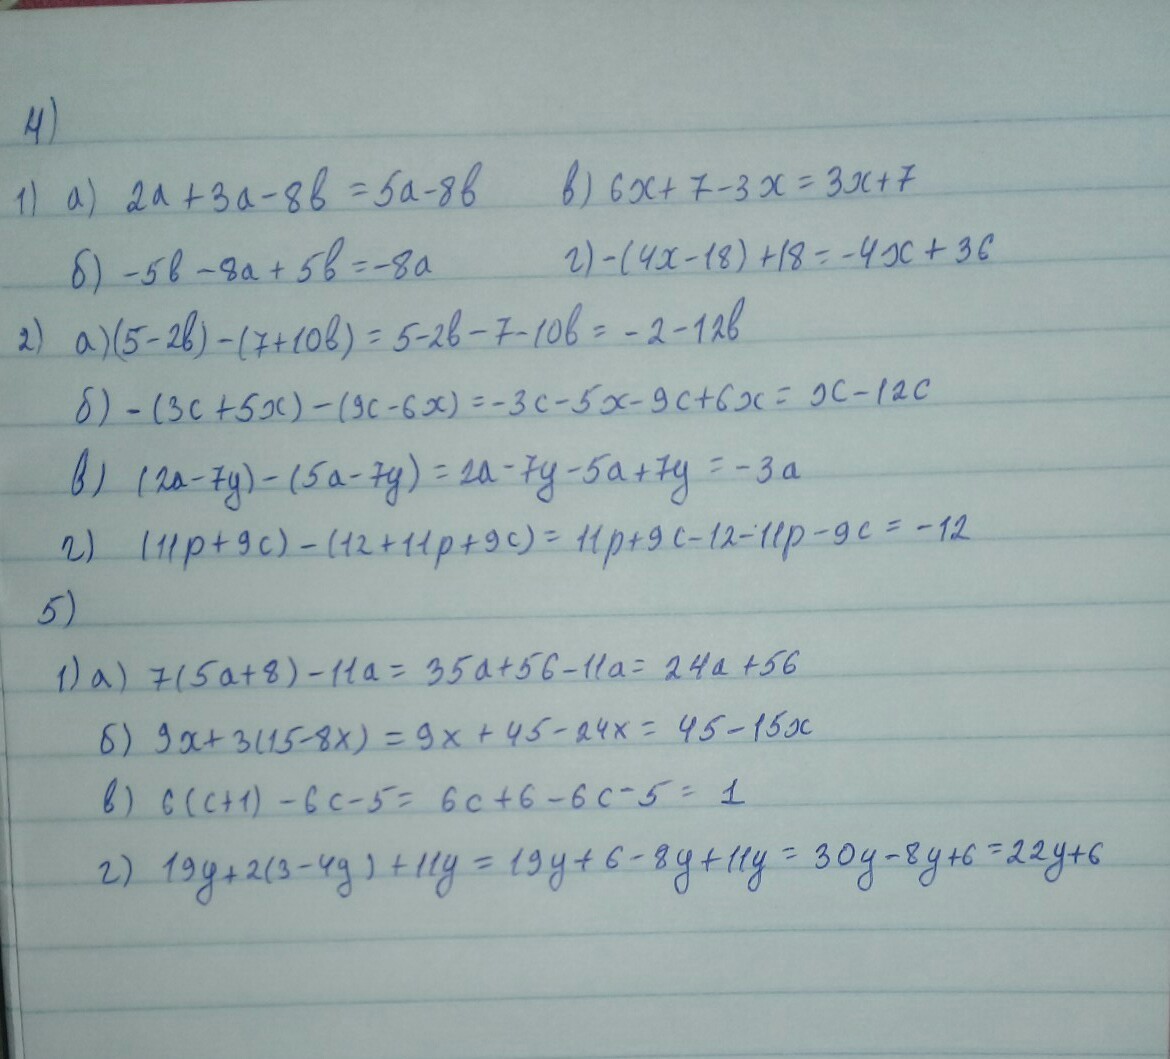 4)
1) а) 2a+3a-8b = 5a-8b в) 6x+7-3x = 3x+7
б) -5b-8a+5b = -8a г) -(4x-18)+18 = -4x+36
2) а) (5-2b)-(7+10b) = 5-2b-7-10b = -2-12b
б) -(3c+5x)-(9c-6x) = -3c-5x-9c+6x = x-12c
в) (2a-7y)-(5a-7y) = 2a-7y-5a+7y = -3a
г) (11p+9c)-(12+11p+9c) = 11p+9c-12-11p-9c = -12
5)
1) а) 7(5a+8)-11a = 35a+56-11a = 24a+56
б) 9x+3(15-8x) = 9x+45-24x = 45-15x
в) 6(c+1)-6c-5 = 6c+6-6c-5 = 1
г) 19y+2(3-4y)+11y = 19y+6-8y+11y = 30y-8y+6 = 22y+6